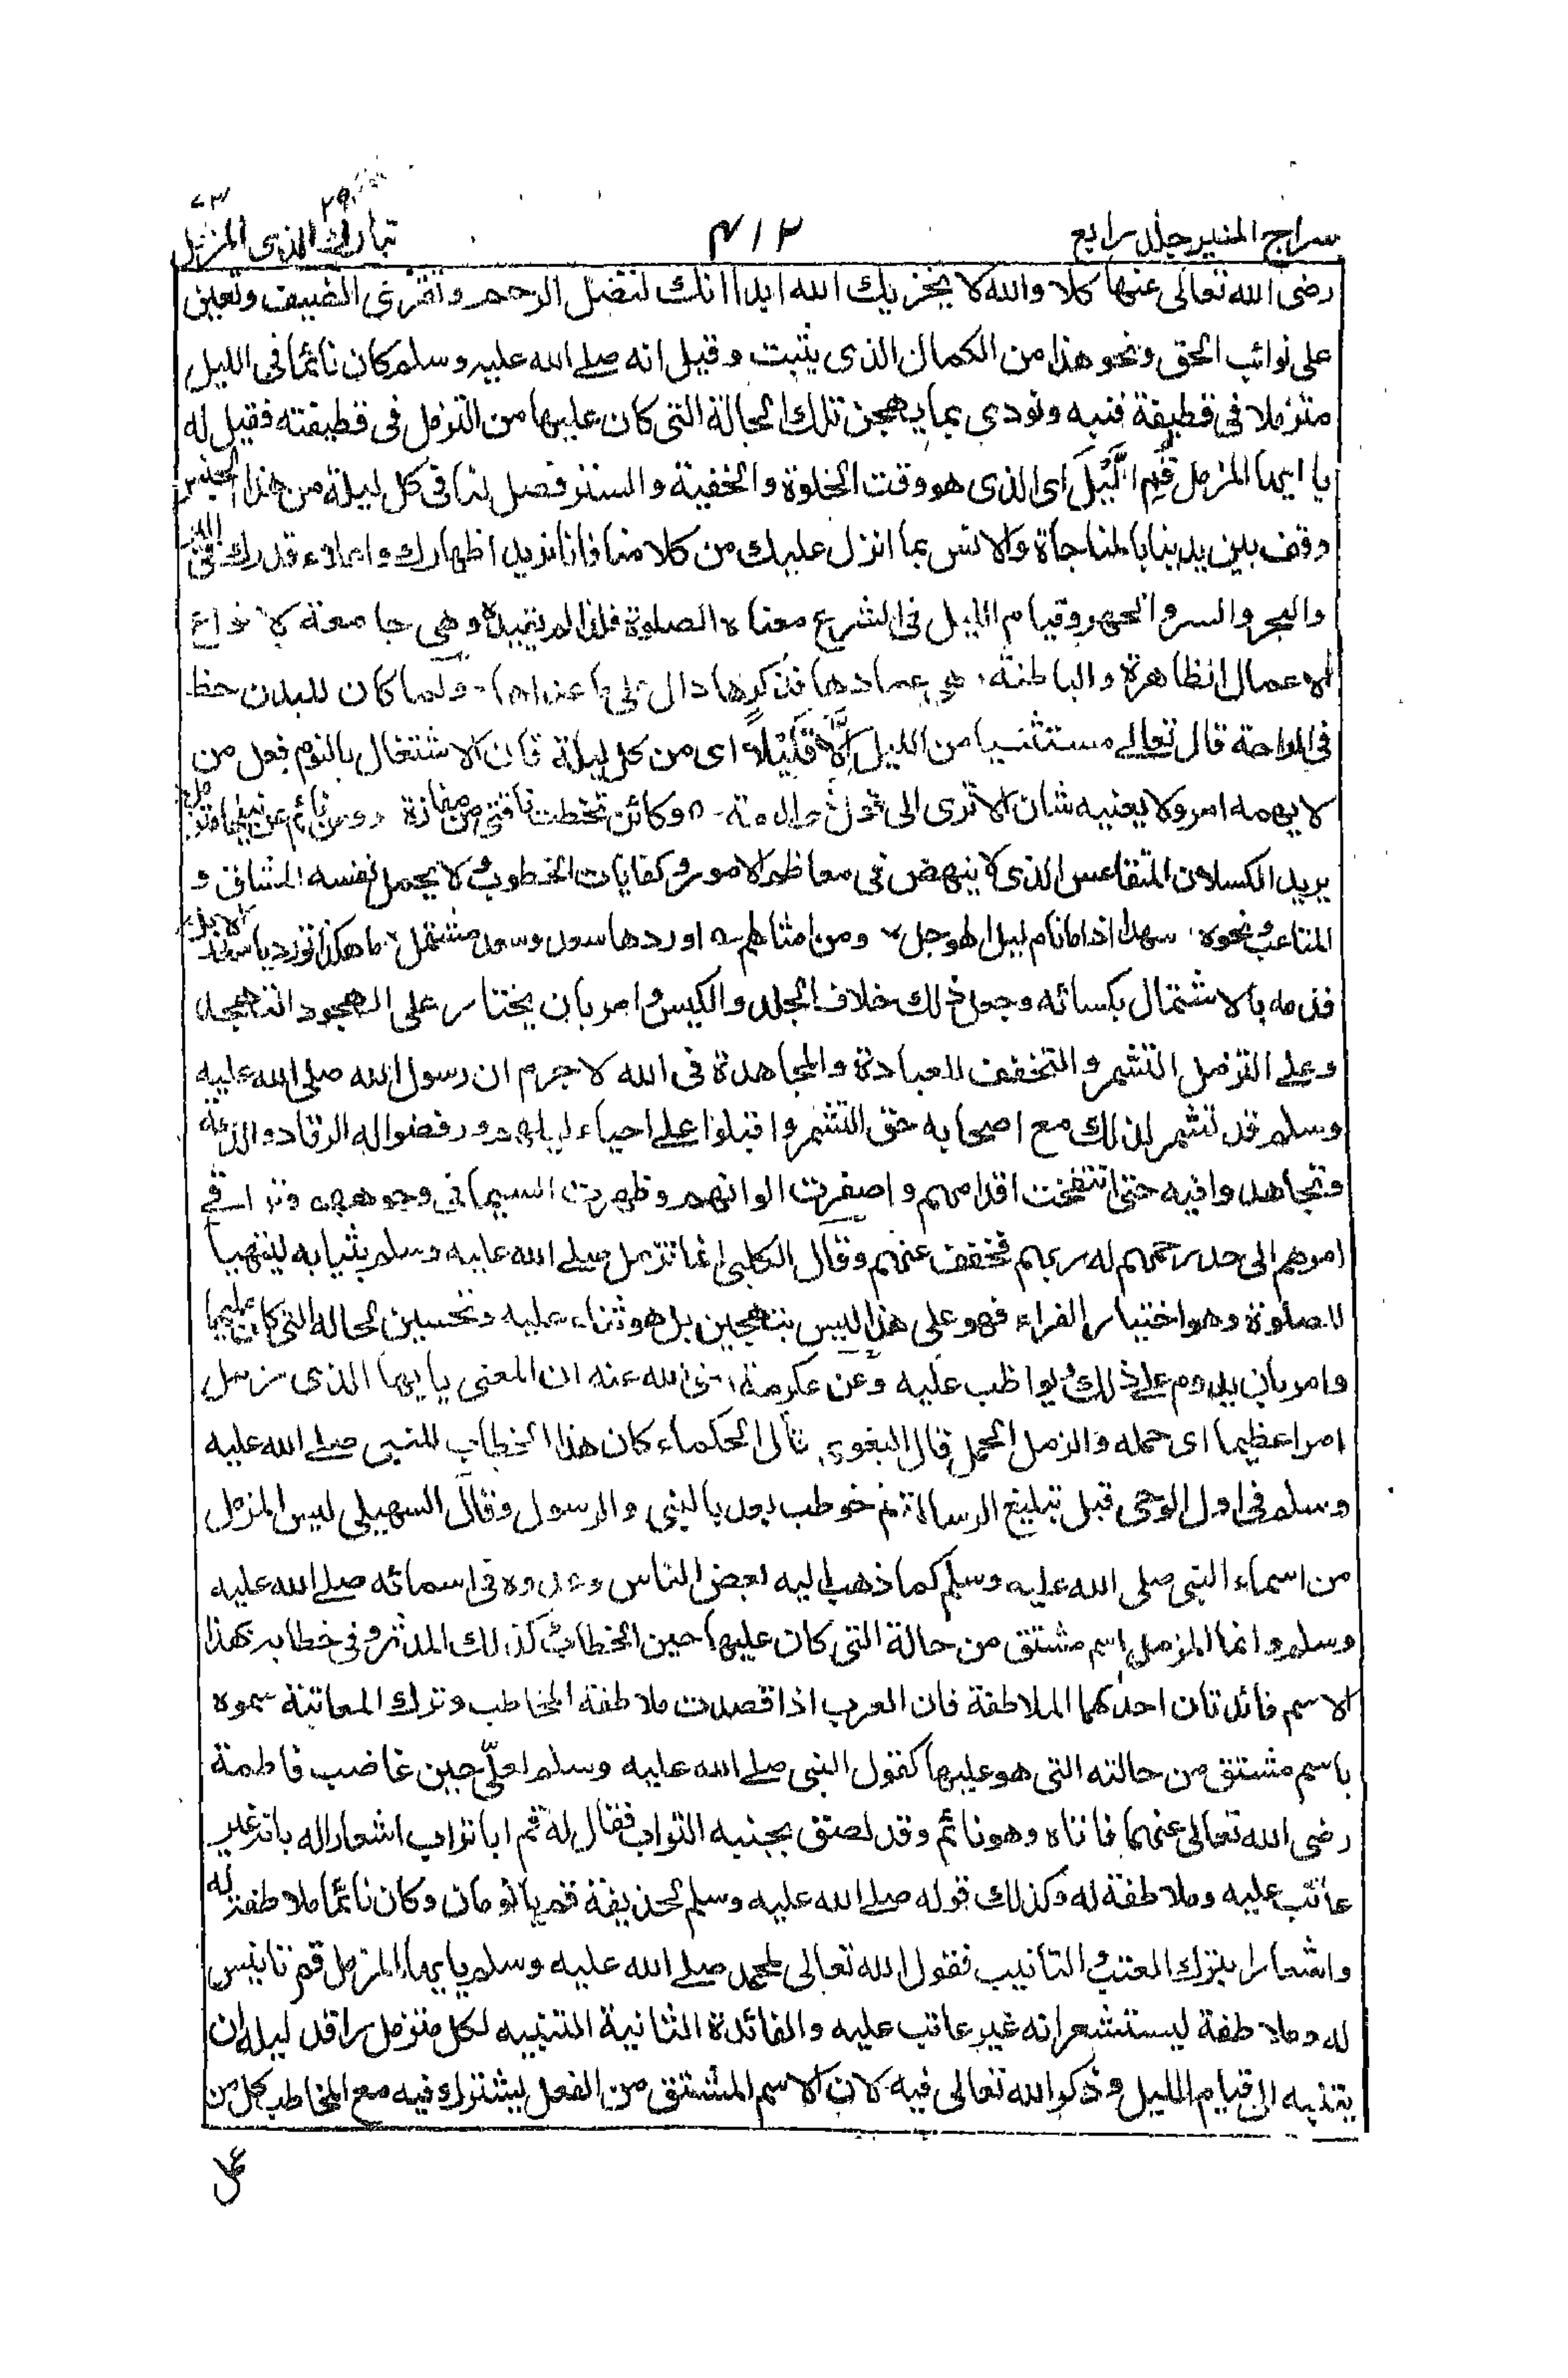 سراج المنير جلد رابع
٤١٢
تبارك الذى ٢٩ المزمل ٧٣
رضى الله تعالى عنها كلا والله لا يخزيك الله ابدا انك لتصل الرحم وتقرى الضيف وتعين
على نوائب الحق ونحو هذا من الكمال الذى يثبت وقيل انه صلے الله عليه وسلم كان نائما فى الليل
متزملا فى قطيفة فنبه ونودى بما يهجن تلك الحالة التى كان عليها من التزمل فى قطيفته فقيل له
يا ايها المزمل قُمِ الَّيْلَ اى الذى هو وقت الخلوة والخفية والستر فصل لنا فى كل ليلة من هذا الجنس
وقف بين يدينا بالمناجاة والانس بما انزل عليك من كلامنا فانا نريد اظهارك واعلاء قدرك فى البر
والبحر والسر والجهر وقيام الليل فى الشرع معناه الصلوة فلذا لم يقيده وهى جامعة لانواع
الاعمال الظاهرة والباطنة وهى عمادها فذكرها دال على ما عداها ولما كان للبدن حظ
فى الراحة قال تعالے مستثنيا من الليل اِلَّا قَلِيْلًا اى من كل ليلة فان الاشتغال بالنوم فعل من
لا يهمه امر ولا يعنيه شان الا ترى الى قول ذى الرمة وكائن تخطت ناقتى من مفازة ومن نائم عن ليلها متزمل
يريد الكسلان المتقاعس الذى لا ينهض فى معاظم الامور وكفايات الخطوب ولا يحمل نفسه المشاق و
المتاعب ونحوه سهدا اذا ما نام ليل الهوجل ومن امثالهم اوردها سعد وسعد مشتمل ما هكذا تورد يا سعد الابل
فذمه بالاشتمال بكسائه وجعل ذلك خلاف الجلد والكيس وامر بان يختار على الهجود التهجد
وعلے التزمل التشمر والتخفف للعبادة والمجاهدة فى الله لا جرم ان رسول الله صلى الله عليه
وسلم قد تشمر لذلك مع اصحابه حق التشمر واقبلوا علے احياء لياليهم ورفضوا له الرقاد والدعة
وتجاهدوا فيه حتى انتفخت اقدامهم واصفرت الوانهم وظهرت السيما فى وجوههم وتراقے
امرهم الى حد رحمهم له ربهم فخفف عنهم وقال الكلبى انما تزمل صلے الله عليه وسلم بثيابه ليتهيا
للصلوة وهو اختيار الفراء فهو على هذا ليس بتهجين بل هو ثناء عليه وتحسين لحاله التى كان عليها
وامر بان يدوم علے ذلك ويواظب عليه وعن عكرمة رضى الله عنه ان المعنى يا يها الذى زمل
امرا عظيما اى حمله والزمل الحمل قال البغوى قال الحكماء كان هذا الخطاب للنبى صلے الله عليه
وسلم فى اول الوحى قبل تبليغ الرسالة ثم خوطب بعد بالنبى والرسول وقال السهيلى ليس المزمل
من اسماء النبى صلى الله عليه وسلم كما ذهب اليه بعض الناس وعدوه فى اسمائه صلے الله عليه
وسلم وانما المزمل اسم مشتق من حالة التى كان عليها حين الخطاب وكذلك المدثر وفى خطابه بهذا
الاسم فائدتان احدٰهما الملاطفة فان العرب اذا قصدت ملاطفة المخاطب وترك المعاتبة سموه
باسم مشتق من حالته التى هو عليها كقول النبى صلے الله عليه وسلم لعلىّ حين غاضب فاطمة
رضى الله تعالى عنهما فاتاه وهو نائم وقد لصق بجنبه التراب فقال له قم ابا تراب اشعارا له بانه غير
عاتب عليه وملاطفة له وكذلك قوله صلے الله عليه وسلم لحذيفة قم يا نومان وكان نائما ملاطفة له
واشعارا بترك العتب والتانيب فقول الله تعالى لمحمد صلے الله عليه وسلم يا يها المزمل قم تانيس
له وملاطفة ليستشعر انه غير عاتب عليه والفائدة الثانية التنبيه لكل متزمل راقد ليله ان
يتنبه الى قيام الليل وذكر الله تعالى فيه لان الاسم المشتق من الفعل يشترك فيه مع المخاطب كل من
عمل